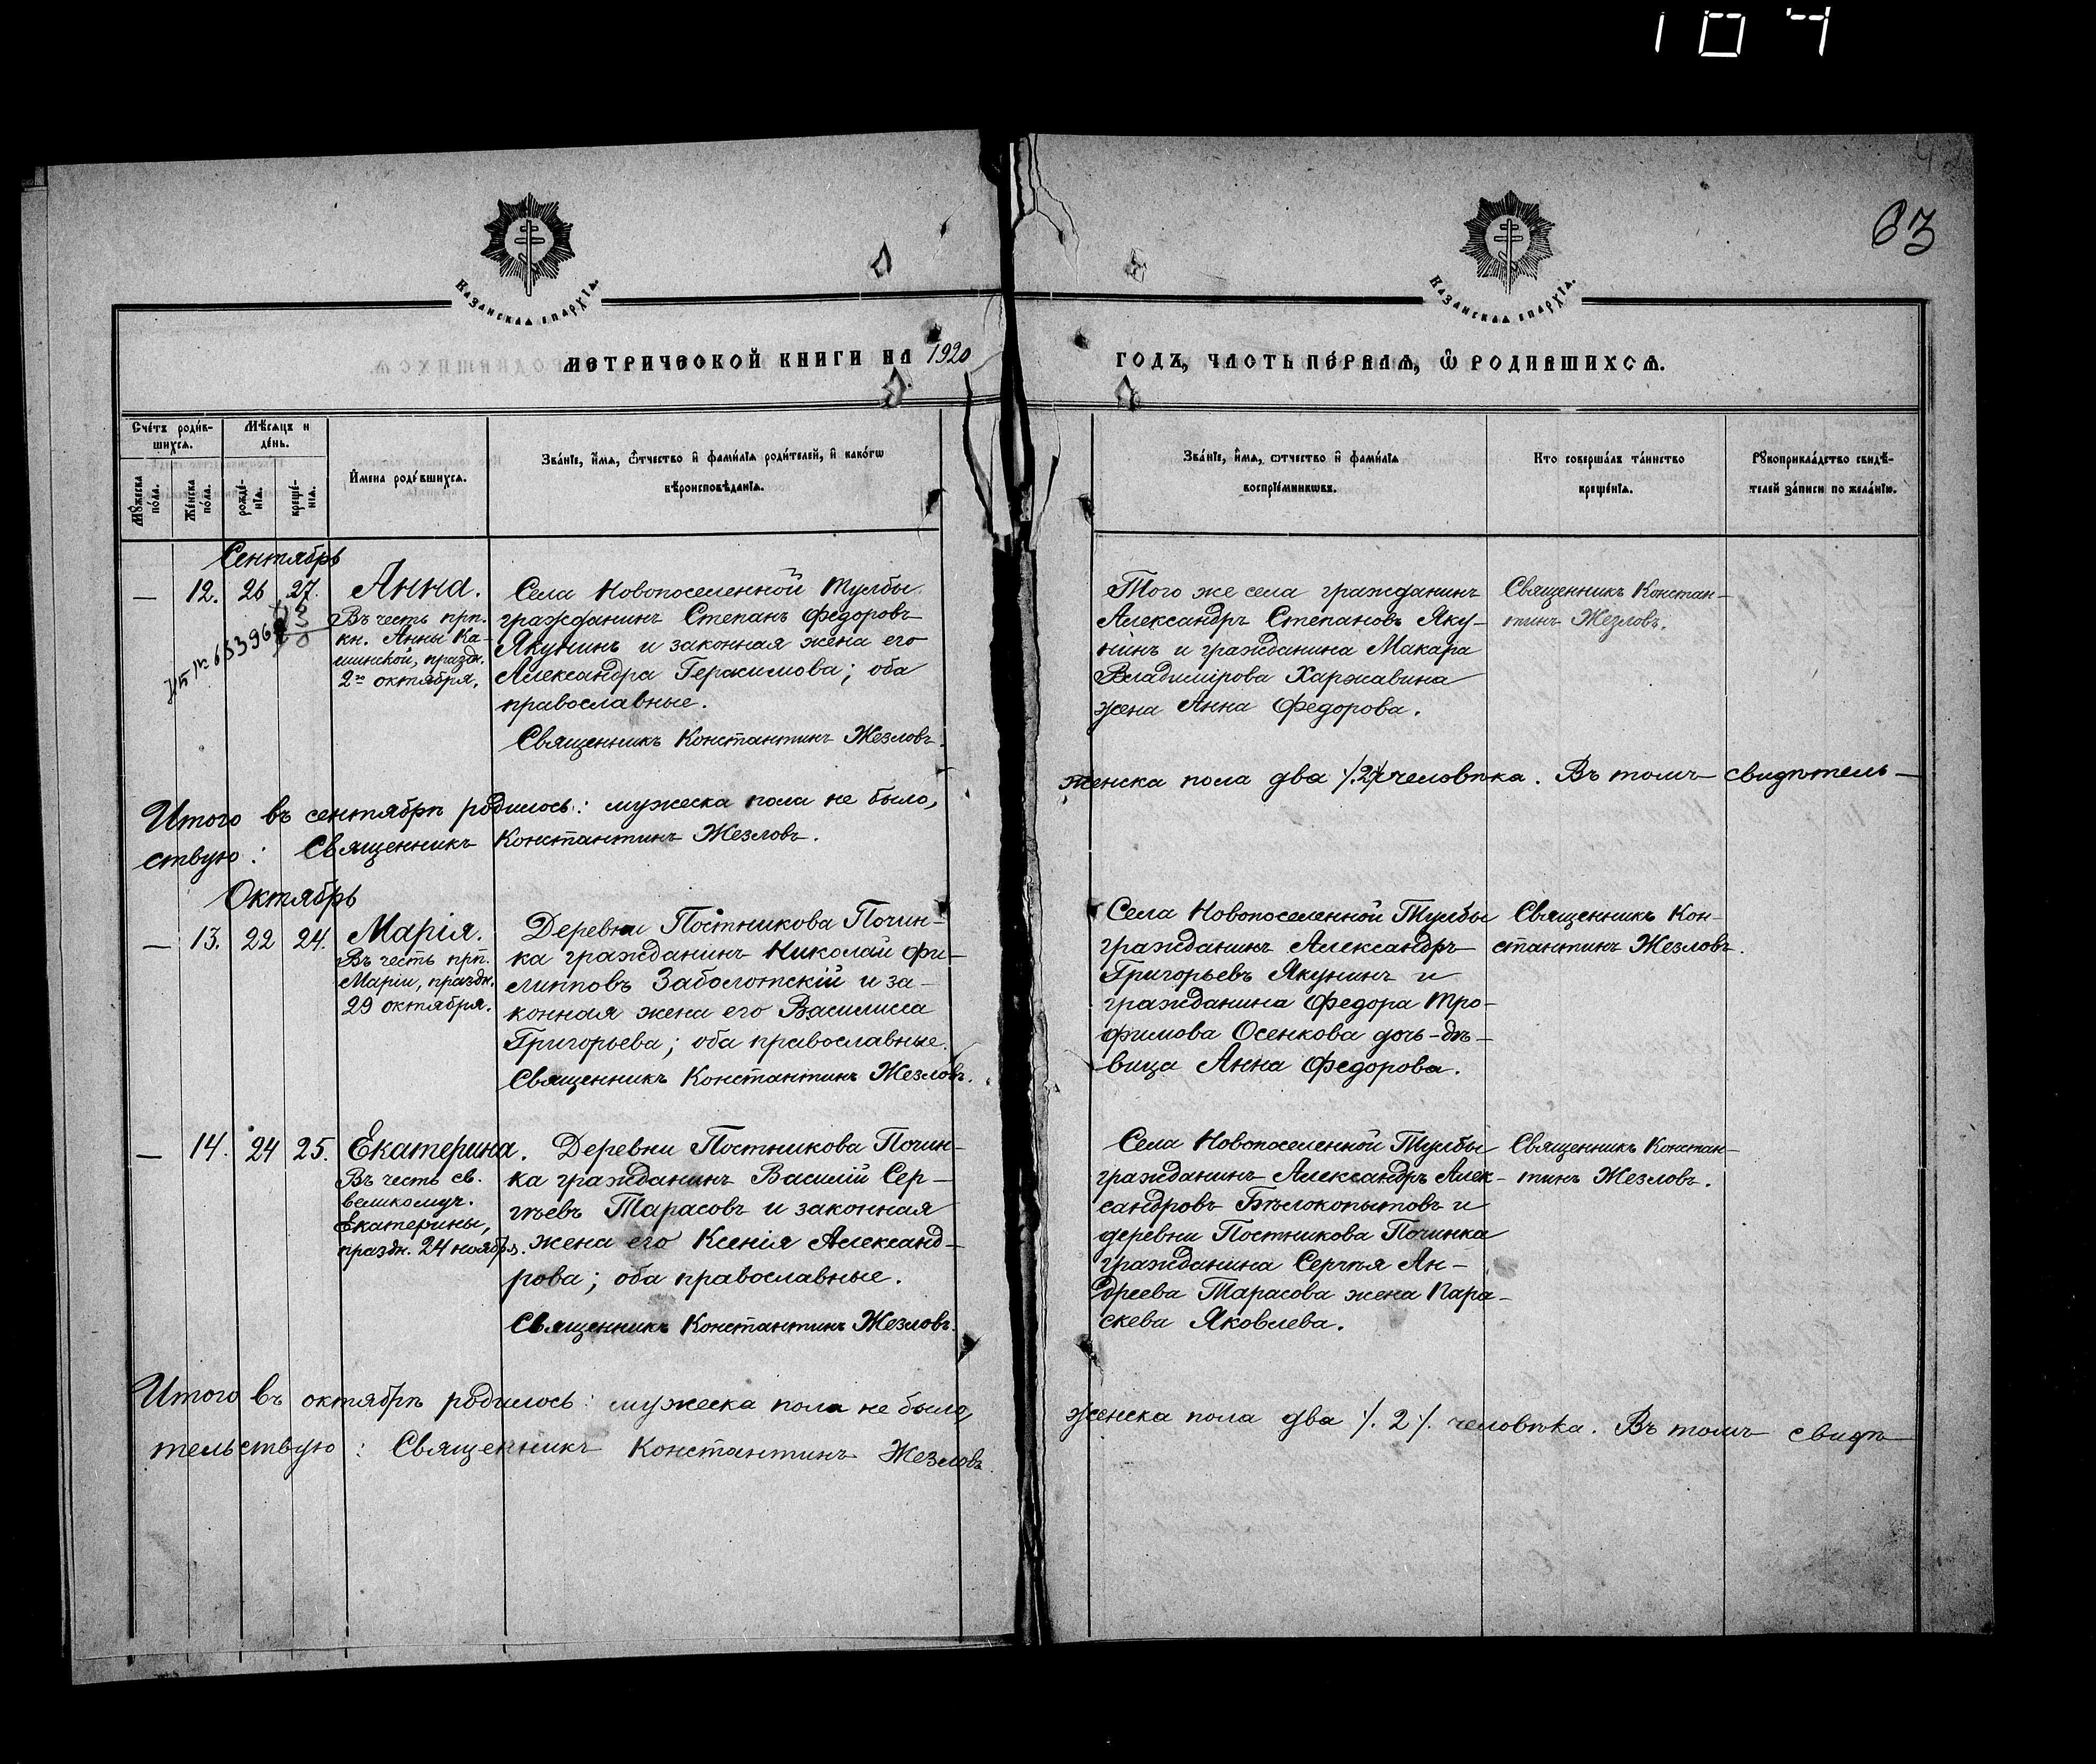 107
63
Казанская епархїя.
Казанская епархїя.
метрической книги на 1920
годъ, часть пе́рвая, ѡ҃ родившихсѧ.
Сче́тъ роди́в-
шихсѧ.
Мѣ́сѧцъ и
де́нь.
Му́жеска
по́ла.
Же́нска
по́ла.
рожде́-
нїѧ.
креще́-
нїѧ.
И҆мена роди́вшихсѧ.
Зва́нїе, и҆́мѧ, ѻ҆́тчество и҆ фами́лїѧ роди́телей, и҆ како́гѡ
вѣроисповѣ́данїѧ.
Зва́нїе, и҆́мѧ, ѻ҆тчество и҆ фами́лїѧ
воспрїе́мникѡвъ.
Кто соверша́лъ та́инство
креще́нїѧ.
Рꙋкоприкла́дство свидѣ́-
телей за́писи по жела́нїю.
Сентябрь
— 12. 26 27. Анна.
Въ честь прп.
кн. Анны Ка-
шинской, праздн.
2го октября.
Села Новопоселенной Тулбы
гражданинъ Степанъ Федоровъ
Якунинъ и законная жена его
Александра Герасимова; оба
православные.
Священникъ Константинъ Жезловъ.
Того же села гражданинъ
Александръ Степановъ Яку-
нинъ и гражданина Макара
Владимірова Харжавина
жена Анна Федорова.
Священникъ Констан-
тинъ Жезловъ.
Итого въ сентябрѣ родилось: мужеска пола не было,
женска пола два /.2/. человѣка. Въ томъ свидѣтель-
ствую: Священникъ Константинъ Жезловъ.
Октябрь
— 13. 22 24. Марія.
Въ честь прп.
Маріи, праздн.
29 октября.
Деревни Постникова Почин-
ка гражданинъ Николай Фи-
липповъ Заболотскій и за-
конная жена его Василисса
Григорьева; оба православные.
Священникъ Константинъ Жезловъ.
Села Новопоселенной Тулбы
гражданинъ Александръ
Григорьевъ Якунинъ и
гражданина Федора Тро-
фимова Осенкова дочь-дѣ-
вица Анна Федорова.
Священникъ Кон-
стантинъ Жезловъ.
— 14. 24 25. Екатерина.
Въ честь св.
великомуч.
Екатерины,
праздн. 24 ноября.
Деревни Постникова Почин-
ка гражданинъ Василій Сер-
гѣевъ Тарасовъ и законная
жена его Ксенія Александ-
рова; оба православные.
Священникъ Константинъ Жезловъ.
Села Новопоселенной Тулбы
гражданинъ Александръ Алек-
сандровъ Бѣлокопытовъ и
деревни Постникова Починка
гражданина Сергѣя Ан-
дреева Тарасова жена Пара-
скева Яковлева.
Священникъ Констан-
тинъ Жезловъ.
Итого въ октябрѣ родилось: мужеска пола не было,
женска пола два /. 2 /. человѣка. Въ томъ свидѣ-
тельствую: Священникъ Константинъ Жезловъ.